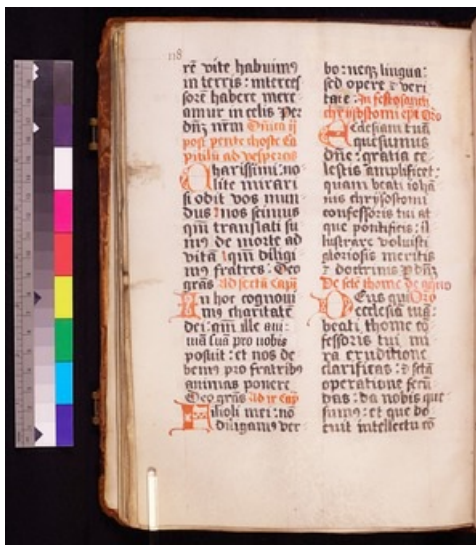 118
rē vite habuim9
in terris: interces
sorē habere mere
amur in celis Per
dn̄z nr̄m Dn̄ica ij
post pente choste Ca
pitulū ad vesperas
Charissimi: no
lite mirari
si odit vos mun
dus: nos scimus
qm̄ translati su
m9 de morte ad
vitā: qm̄ diligi
m9 fratres. Deo
gr̄as ad sextā Cap̄
In hoc cognoui
m9 charitatē
dei: qm̄ ille ani
mā suā pro nobis
posuit: et nos de
bem9 pro fratrib9
animas ponere
Deo gr̄as Ad ix Cap̄
Filioli mei: nō
diligam9 ver
bo: neqz lingua:
sed opere ⁊ veri
tate: In festo sancti
chrysostomi ep̄i Or̄o
Ecclesiam tuā
quesumus
dn̄e: gratia ce
lestis amplificet:
quam beati iohā
nis chrysostomi
confessoris tui at
que pontificis: il
lustrare voluisti
gloriosis meritis
⁊ doctrinis P dn̄z
De sctō thome de aquino
Deus qui Or̄o
ecclesiā tuā:
beati thome cō
fessoris tui mi
ra eruditione
clarificas: ⁊ sctā
operatione fecū
das: da nobis que
sum9: et que do
cuit intellectu cō